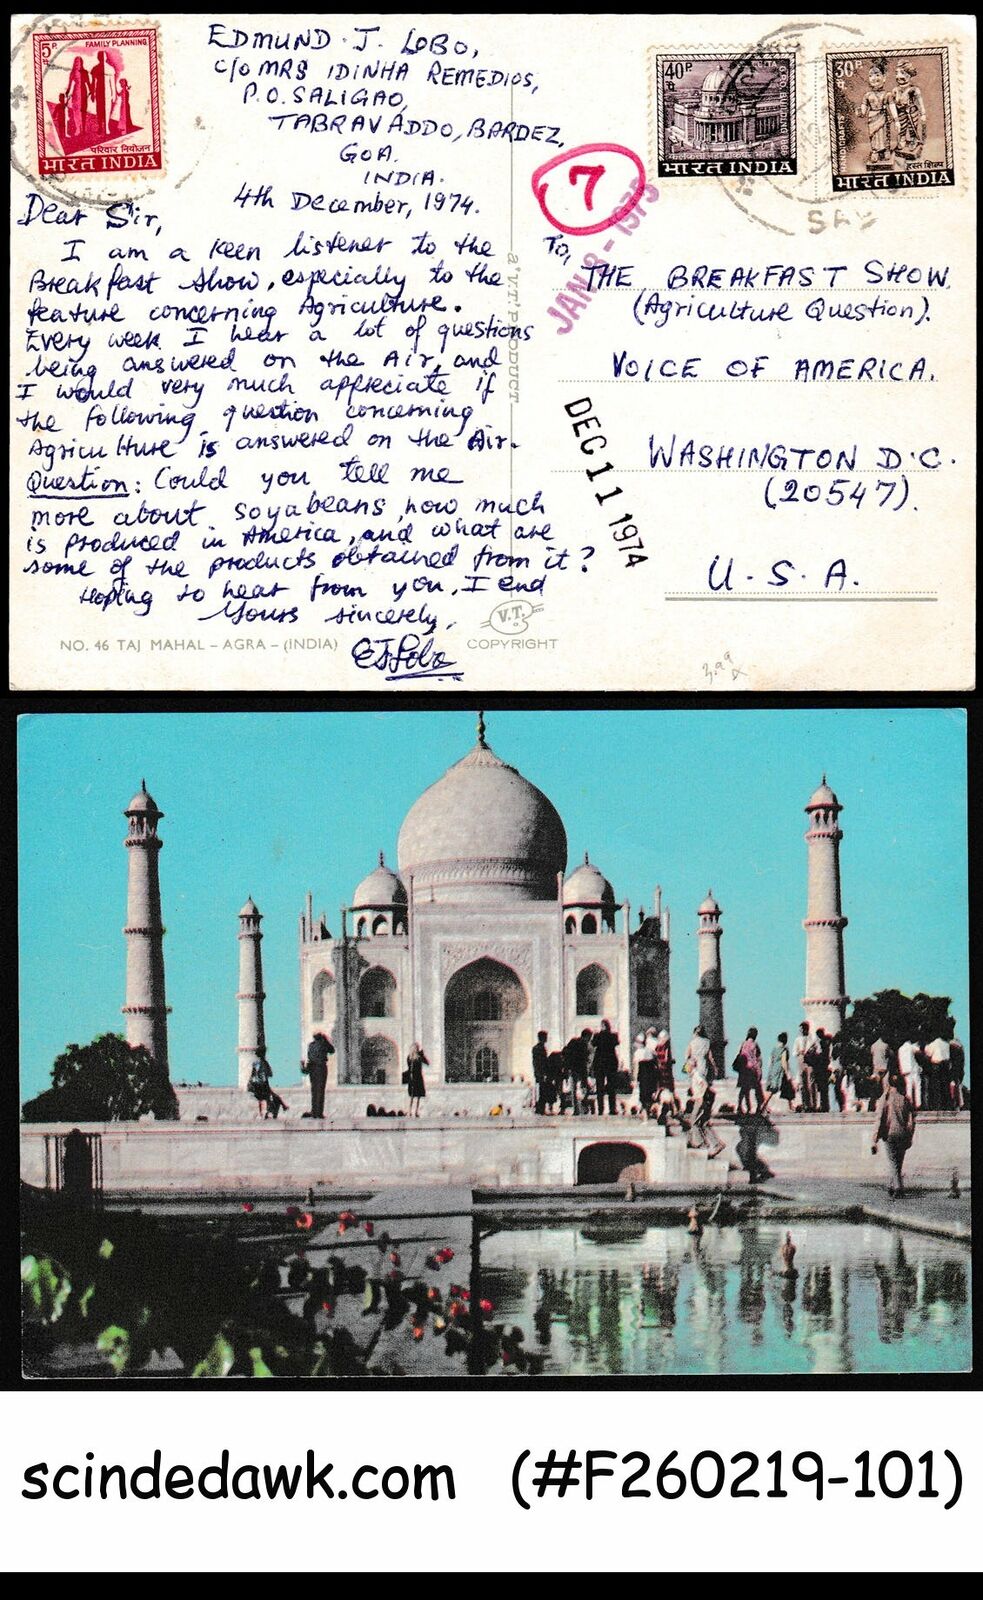 5P
FAMILY PLANNING
परिवार नियोजन
भारत INDIA
EDMUND J. LOBO,
C/O MRS IDINHA REMEDIOS,
P.O. SALIGAO,
TABRAVADDO, BARDEZ,
GOA.
INDIA.
4th December, 1974.
Dear Sir,
I am a keen listener to the
Breakfast Show, especially to the
feature concerning Agriculture.
Every week I hear a lot of questions
being answered on the Air, and
I would very much appreciate if
the following question concerning
Agriculture is answered on the Air.
Question: Could you tell me
more about soyabeans, how much
is produced in America, and what are
some of the products obtained from it?
Hoping to hear from you, I end
Yours sincerely,
EJLobo
NO. 46 TAJ MAHAL - AGRA - (INDIA)
V.T.
COPYRIGHT
a 'V.T.' PRODUCT
7
40P
भारत INDIA
30P
HANDICRAFTS
हस्त शिल्प
भारत INDIA
JAN 3 - 1975
DEC 11 1974
To,
THE BREAKFAST SHOW.
(Agriculture Question).
VOICE OF AMERICA.
WASHINGTON D.C.
(20547).
U.S.A.
scindedawk.com (#F260219-101)